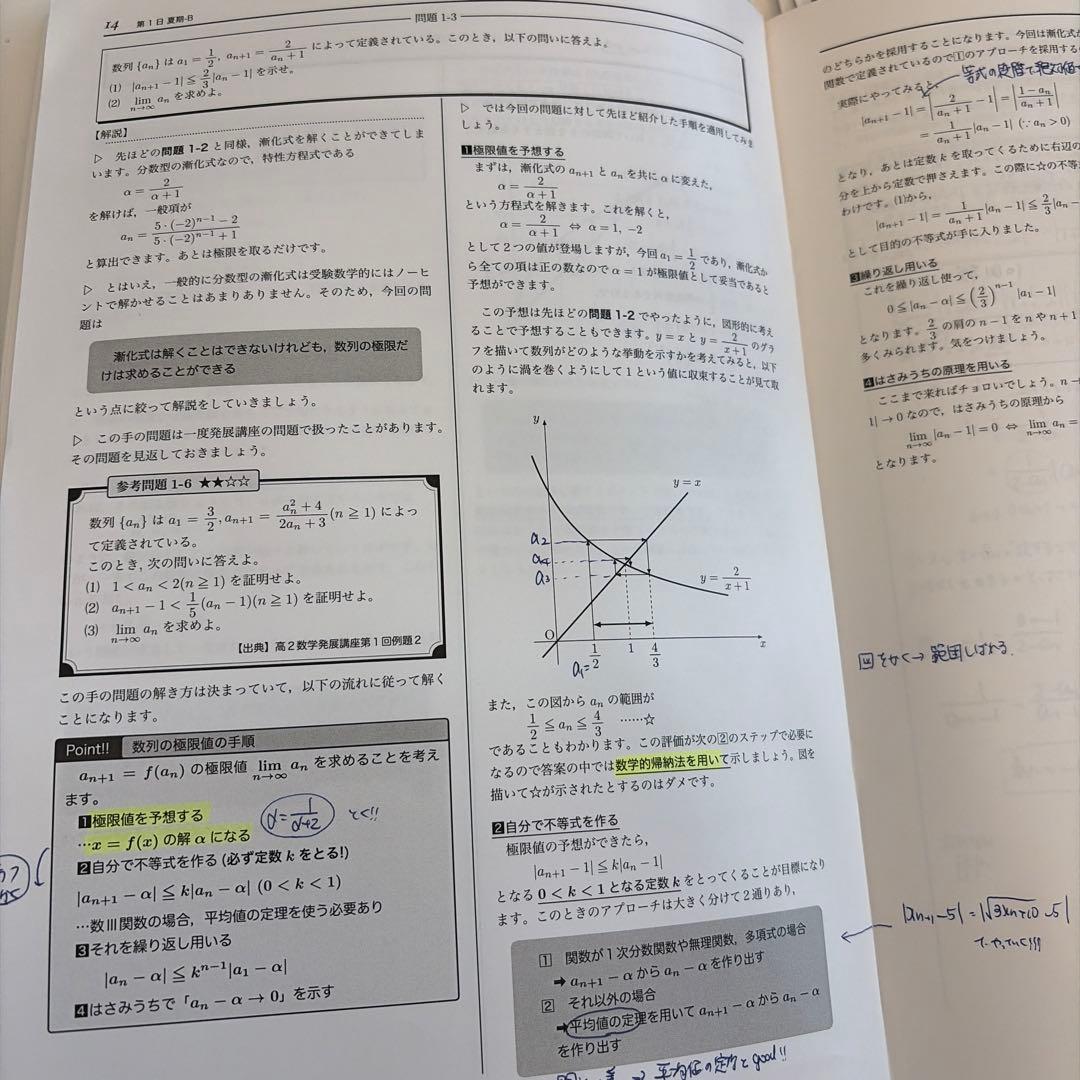 14 第1日 夏期-B
問題 1-3
数列 {aₙ} は a₁ = 1/2, aₙ₊₁ = 2/(aₙ + 1) によって定義されている。このとき，以下の問いに答えよ。
(1) |aₙ₊₁ − 1| ≦ 2/3|aₙ − 1| を示せ。
(2) lim_{n→∞} aₙ を求めよ。
【解説】
▷ 先ほどの問題 1-2 と同様，漸化式を解くことができてしま
います。分数型の漸化式なので，特性方程式である
α = 2/(α + 1)
を解けば，一般項が
aₙ = (5・(−2)ⁿ⁻¹ − 2)/(5・(−2)ⁿ⁻¹ + 1)
と算出できます。あとは極限を取るだけです。
▷ とはいえ，一般的に分数型の漸化式は受験数学的にはノーヒ
ントで解かせることはあまりありません。そのため，今回の問
題は
漸化式は解くことはできないけれども，数列の極限だ
けは求めることができる
という点に絞って解説をしていきましょう。
▷ この手の問題は一度発展講座の問題で扱ったことがあります。
その問題を見返しておきましょう。
参考問題 1-6 ★★☆☆
数列 {aₙ} は a₁ = 3/2, aₙ₊₁ = (aₙ² + 4)/(2aₙ + 3) (n ≧ 1) によっ
て定義されている。
このとき, 次の問いに答えよ。
(1) 1 < aₙ < 2(n ≧ 1) を証明せよ。
(2) aₙ₊₁ − 1 < 1/5(aₙ − 1)(n ≧ 1) を証明せよ。
(3) lim_{n→∞} aₙ を求めよ。
【出典】高２数学発展講座第１回例題２
この手の問題の解き方は決まっていて，以下の流れに従って解く
ことになります。
Point!! 数列の極限値の手順
aₙ₊₁ = f(aₙ) の極限値 lim_{n→∞} aₙ を求めることを考え
ます。
1 極限値を予想する
…x = f(x) の解 α になる
α = 1/(α+2) とく!!
2 自分で不等式を作る (必ず定数 k をとる!)
|aₙ₊₁ − α| ≦ k|aₙ − α| (0 < k < 1)
…数Ⅲ関数の場合，平均値の定理を使う必要あり
3 それを繰り返し用いる
|aₙ − α| ≦ kⁿ⁻¹|a₁ − α|
4 はさみうちで「aₙ − α → 0」を示す
▷ では今回の問題に対して先ほど紹介した手順を適用してみま
しょう。
1 極限値を予想する
まずは，漸化式の aₙ₊₁ と aₙ を共に α に変えた，
α = 2/(α + 1)
という方程式を解きます。これを解くと，
α = 2/(α + 1) ⇔ α = 1, −2
として２つの値が登場しますが，今回 a₁ = 1/2 であり，漸化式か
ら全ての項は正の数なので α = 1 が極限値として妥当であると
予想ができます。
この予想は先ほどの問題 1-2 でやったように，図形的に考え
ることで予想することもできます。y = x と y = 2/(x+1) のグラ
フを描いて数列がどのような挙動を示すかを考えてみると，以下
のように渦を巻くようにして 1 という値に収束することが見て取
れます。
y
y = x
a₂
a₄
a₃
y = 2/(x + 1)
O
1/2 1 4/3 x
a₁=
また，この図から aₙ の範囲が
1/2 ≦ aₙ ≦ 4/3 ……☆
であることもわかります。この評価が次の2のステップで必要に
なるので答案の中では数学的帰納法を用いて示しましょう。図を
描いて☆が示されたとするのはダメです。
2 自分で不等式を作る
極限値の予想ができたら，
|aₙ₊₁ − 1| ≦ k|aₙ − 1|
となる 0 < k < 1 となる定数 k をとってくることが目標になり
ます。このときのアプローチは大きく分けて２通りあり，
1 関数が１次分数関数や無理関数，多項式の場合
➡ aₙ₊₁ − α から aₙ − α を作り出す
2 それ以外の場合
➡平均値の定理を用いて aₙ₊₁ − α から aₙ − α
を作り出す
平均値の定理 と good!!
のどちらかを採用することになります。今回は漸化式が
関数で定義されているので1のアプローチを採用する
実際にやってみると
|aₙ₊₁ − 1| = |2/(aₙ + 1) − 1| = |(1 − aₙ)/(aₙ + 1)|
= 1/(aₙ + 1)|aₙ − 1| (∵ aₙ > 0)
となり，あとは定数 k を取ってくるために右辺の
分を上から定数で押さえます。この際に☆の不等
わけです。(1)から，
|aₙ₊₁ − 1| = 1/(aₙ + 1)|aₙ − 1| ≦ 2/3|aₙ −
として目的の不等式が手に入りました。
3 繰り返し用いる
これを繰り返し使って，
0 ≦ |aₙ − α| ≦ (2/3)ⁿ⁻¹ |a₁ − 1|
となります。2/3 の肩の n − 1 を n や n + 1
多くみられます。気をつけましょう。
4 はさみうちの原理を用いる
ここまで来ればチョロいでしょう。n →
1| → 0 なので，はさみうちの原理から
lim_{n→∞} |aₙ − 1| = 0 ⇔ lim_{n→∞} aₙ =
となります。
図をかく→ 範囲しばれる